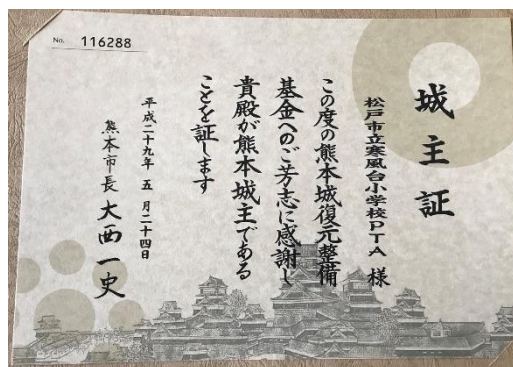 No. 116288
城主証
松戸市立寒風台小学校PTA 様
この度の熊本城復元整備
基金へのご芳志に感謝し
貴殿が熊本城主である
ことを証します
平成二十九年 五月二十四日
熊本市長 大西一史